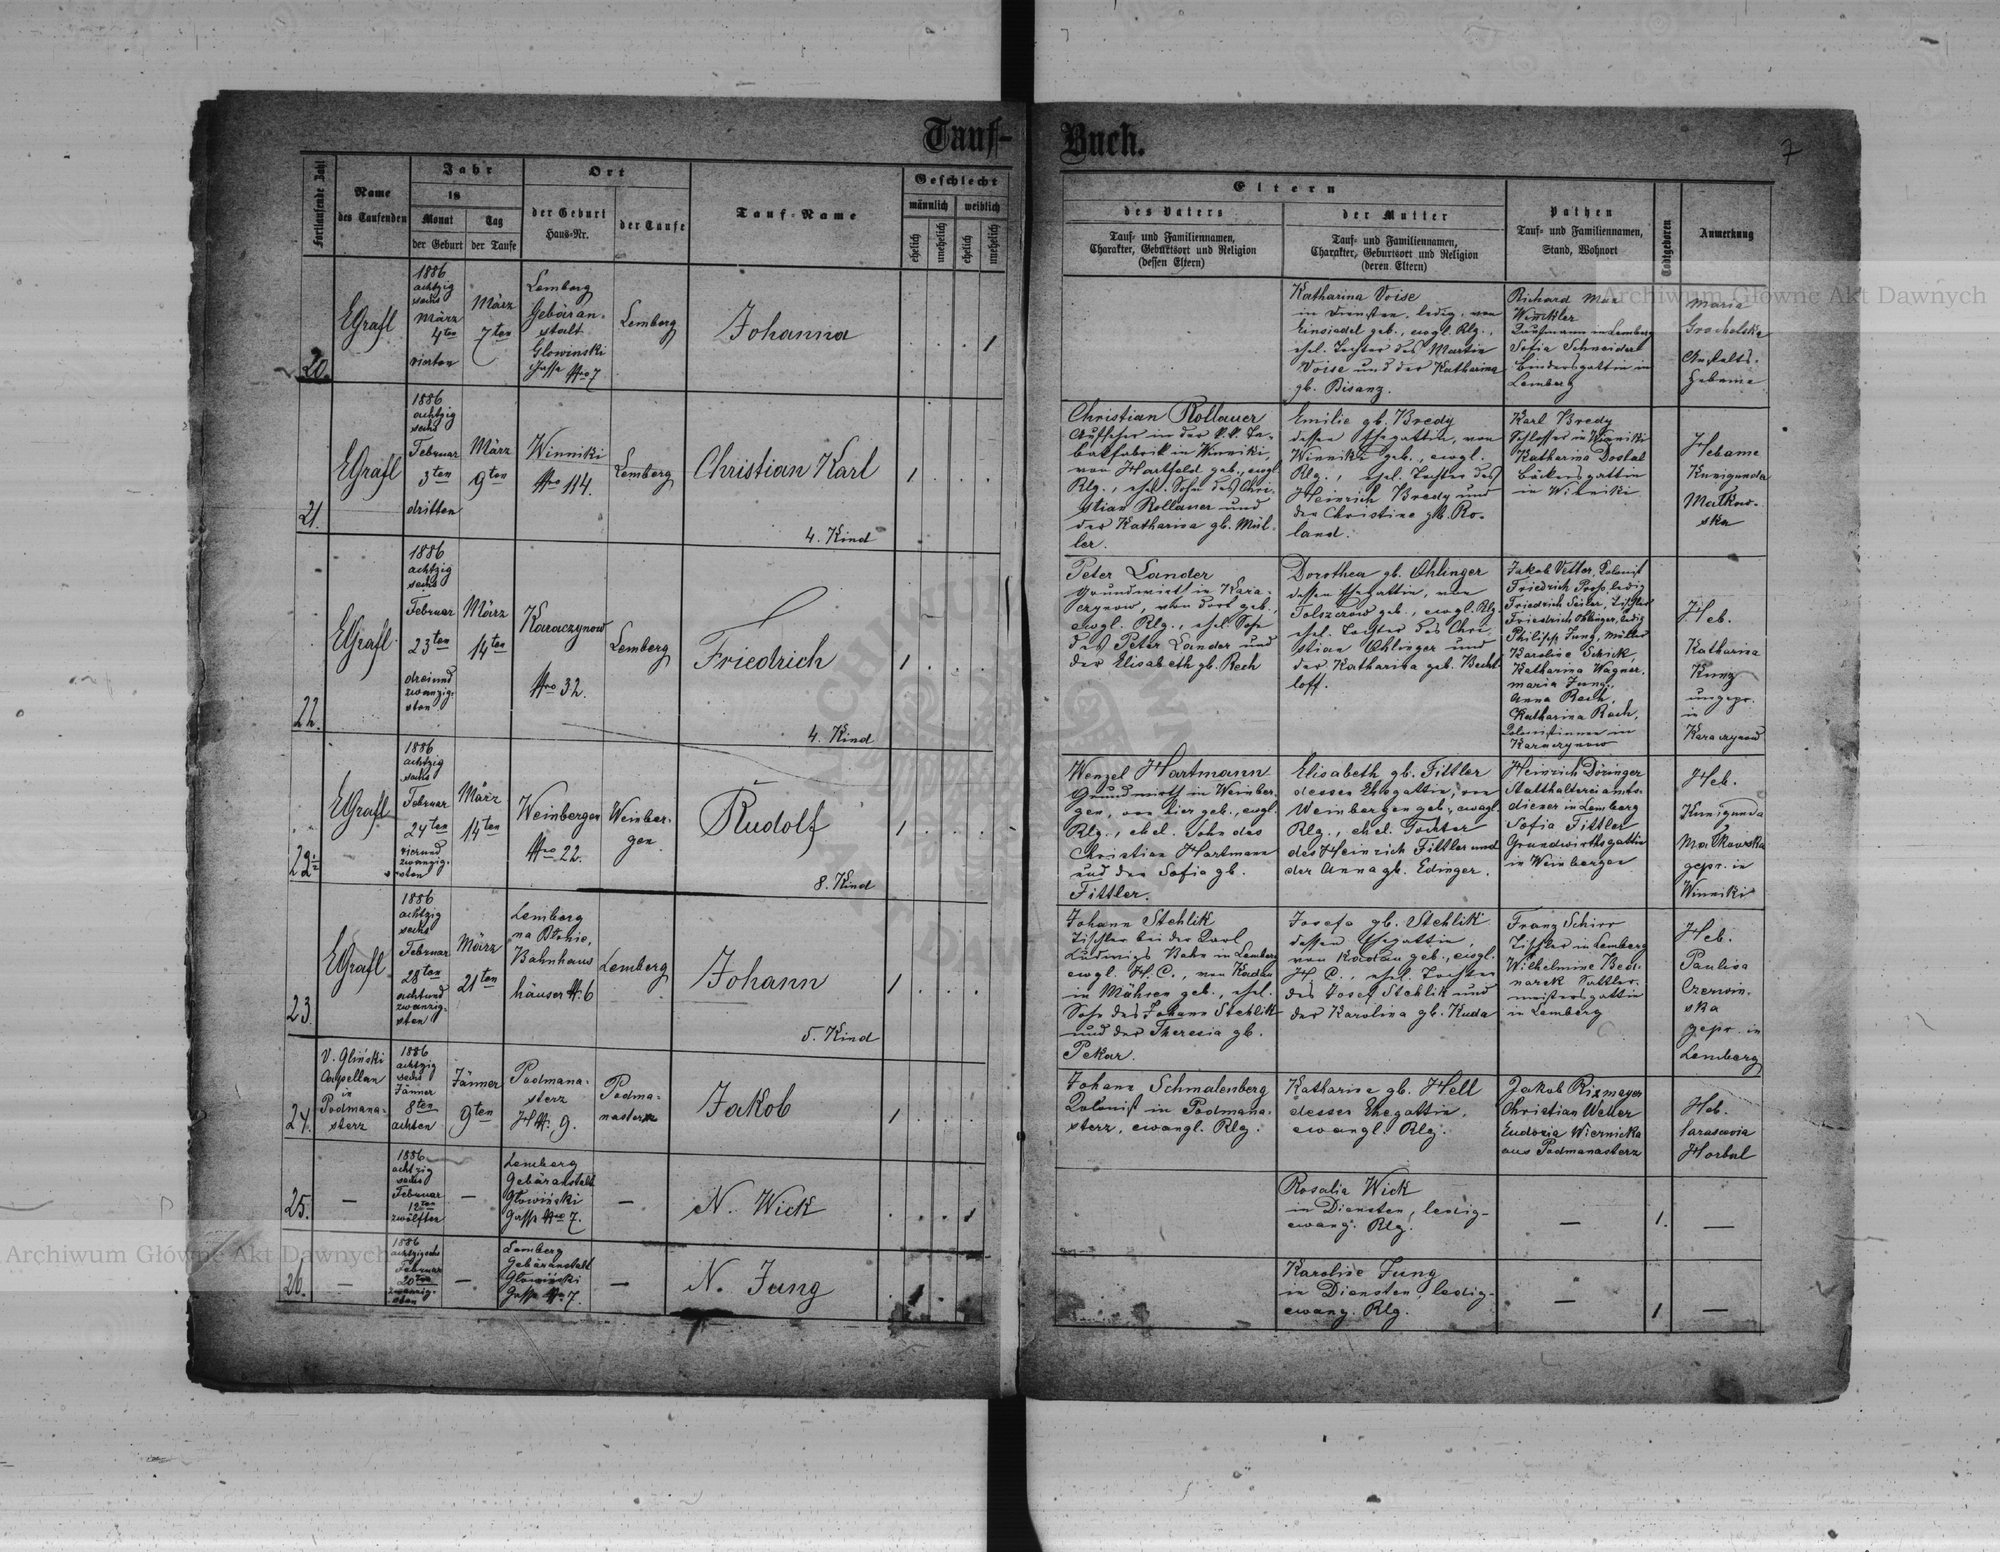 Tauf-
Buch.
7
Fortlaufende Zahl
Name
des Taufenden
Jahr
18
Monat
der Geburt
Tag
der Taufe
Ort
der Geburt
Haus-Nr.
der Taufe
Tauf-Name
Geschlecht
männlich
weiblich
ehelich
unehelich
ehelich
unehelich
Eltern
des Vaters
Tauf- und Familiennamen,
Charakter, Geburtsort und Religion
(dessen Eltern)
der Mutter
Tauf- und Familiennamen,
Charakter, Geburtsort und Religion
(deren Eltern)
Pathen
Tauf- und Familiennamen,
Stand, Wohnort
Todtgeboren
Anmerkung
20.
EGrafl
1886
achtzig
sechs
März
4ten
vierten
März
7ten
Lemberg
Gebäran-
stalt
Glowinski
Gasse Nro 7
Lemberg
Johanna
1
Katharina Voise
in Diensten, ledig, von
Einsiedel geb., evgl. Rlg.,
ehel. Tochter des Martin
Voise und der Katharina
gb. Bisanz.
Richard Max
Winckler
Kaufmann in Lemberg
Sofia Schneider
Bindersgattin in
Lemberg
Maria
Grocholska
Anstalts-
Hebame
21.
EGrafl
1886
achtzig
sechs
Februar
3ten
dritten
März
9ten
Winniki
Nro 114.
Lemberg
Christian Karl
4. Kind
1
Christian Rollauer
Aufseher in der k.k. Ta-
bakfabrik in Winniki,
von Hartfeld geb., evgl.
Rlg., ehel. Sohn des Chri-
stian Rollauer und
der Katharina gb. Mül-
ler.
Emilie gb. Bredy
dessen Ehegattin, von
Winniki geb., evgl.
Rlg., ehel. Tochter des
Heinrich Bredy und
der Christine gb. Ro-
land.
Karl Bredy
Schlosser in Winniki
Katharina Dostal
Bäckersgattin
in Winniki
Hebame
Kunigunda
Malkow-
ska
22.
EGrafl
1886
achtzig
sechs
Februar
23ten
dreiund
zwanzig-
sten
März
14ten
Karaczynow
Nro 32.
Lemberg
Friedrich
4. Kind
1
Peter Lander
Grundwirth in Kara-
czynow, von dort geb.,
evgl. Rlg., ehel. Sohn
des Peter Lander und
der Elisabeth gb. Rech
Dorothea gb. Ohlinger
dessen Ehegattin, von
geb., evgl. Rlg.
ehel. Tochter des Chri-
stian Ohlinger und
der Katharina geb. Becht
loff.
Jakob Vetter, Kolonist
Friedrich Propp, ledig
Friedrich Seiler, Tischler
Friedrich Ohlinger, ledig
Philipp Jung, Müller
Karoline Schick,
Katharina Wagner,
Maria Jung,
Anna Rech,
Katharina Rech,
Kolonistinnen in
Karaczynow
Heb.
Katharina
Kunz
ungepr.
in
Karaczynow
22½
EGrafl
1886
achtzig
sechs
Februar
24ten
vierund
zwanzig-
sten
März
14ten
Weinbergen
Nro 22.
Weinber-
gen
Rudolf
8. Kind
1
Wenzel Hartmann
Grundwirth in Weinber-
gen, von hier geb., evgl.
Rlg., ehel. Sohn des
Christian Hartmann
und der Sofia gb.
Fittler.
Elisabeth gb. Fittler
dessen Ehegattin, von
Weinbergen geb., evagl.
Rlg., ehel. Tochter
des Heinrich Fittler und
der Anna gb. Edinger.
Heinrich Döringer
Statthaltereiamts-
diener in Lemberg
Sofia Fittler
Grundwirthsgattin
in Weinbergen
Heb.
Kunigunda
Malkowska
gepr. in
Winniki
23.
EGrafl
1886
achtzig
sechs
Februar
28ten
achtund
zwanzig-
sten
März
21ten
Lemberg
"na Błonie,
Bahnhaus
häuser № 6
Lemberg
Johann
5. Kind
1
Johann Stehlik
Tischler bei der Karl
Ludwigs Bahn in Lemberg
evgl. H.C., von Kadau
in Mähren geb., ehel.
Sohn des Johann Stehlik
und der Theresia gb.
Pekar.
Josefa gb. Stehlik
dessen Ehegattin,
von Kadau geb., evgl.
H.C., ehel. Tochter
des Josef Stehlik und
der Karolina gb. Kuda
Franz Schirr
Tischler in Lemberg
Wilhelmine Bed-
narek Sattler-
meistersgattin
in Lemberg
Heb.
Paulina
Czerwin-
ska
gepr. in
Lemberg
24.
V. Gliński
Capellan
in
Podmana-
sterz
1886
achtzig
sechs
Jänner
8ten
achten
Jänner
9ten
Podmana-
sterz
H№. 9.
Podma-
nasterz
Jakob
1
Johann Schmalenberg
Kolonist in Podmana-
sterz, ewangl. Rlg.
Katharina gb. Hell
dessen Ehegattin,
ewangl. Rlg.
Jakob Rixmayer
Christian Weller
Eudoxia Wiernicka
aus Podmanasterz
Heb.
Parascevia
Horbal
25.
—
1886
achtzig
sechs
Februar
12ten
zwölften
—
Lemberg
Gebäranstalt
Głowiński
Gasse Nro 7.
—
N. Wick
1
Rosalia Wick
in Diensten, ledig-
ewang. Rlg.
—
1.
—
26.
—
1886
achtzigsechs
Februar
20ten
zwanzig-
sten
—
Lemberg
Gebäranstalt
Głowiński
Gasse Nro 7.
—
N. Jung
1
Karoline Jung
in Diensten, ledig-
ewang. Rlg.
—
1
—
Archiwum Główne Akt Dawnych
Archiwum Główne Akt Dawnych